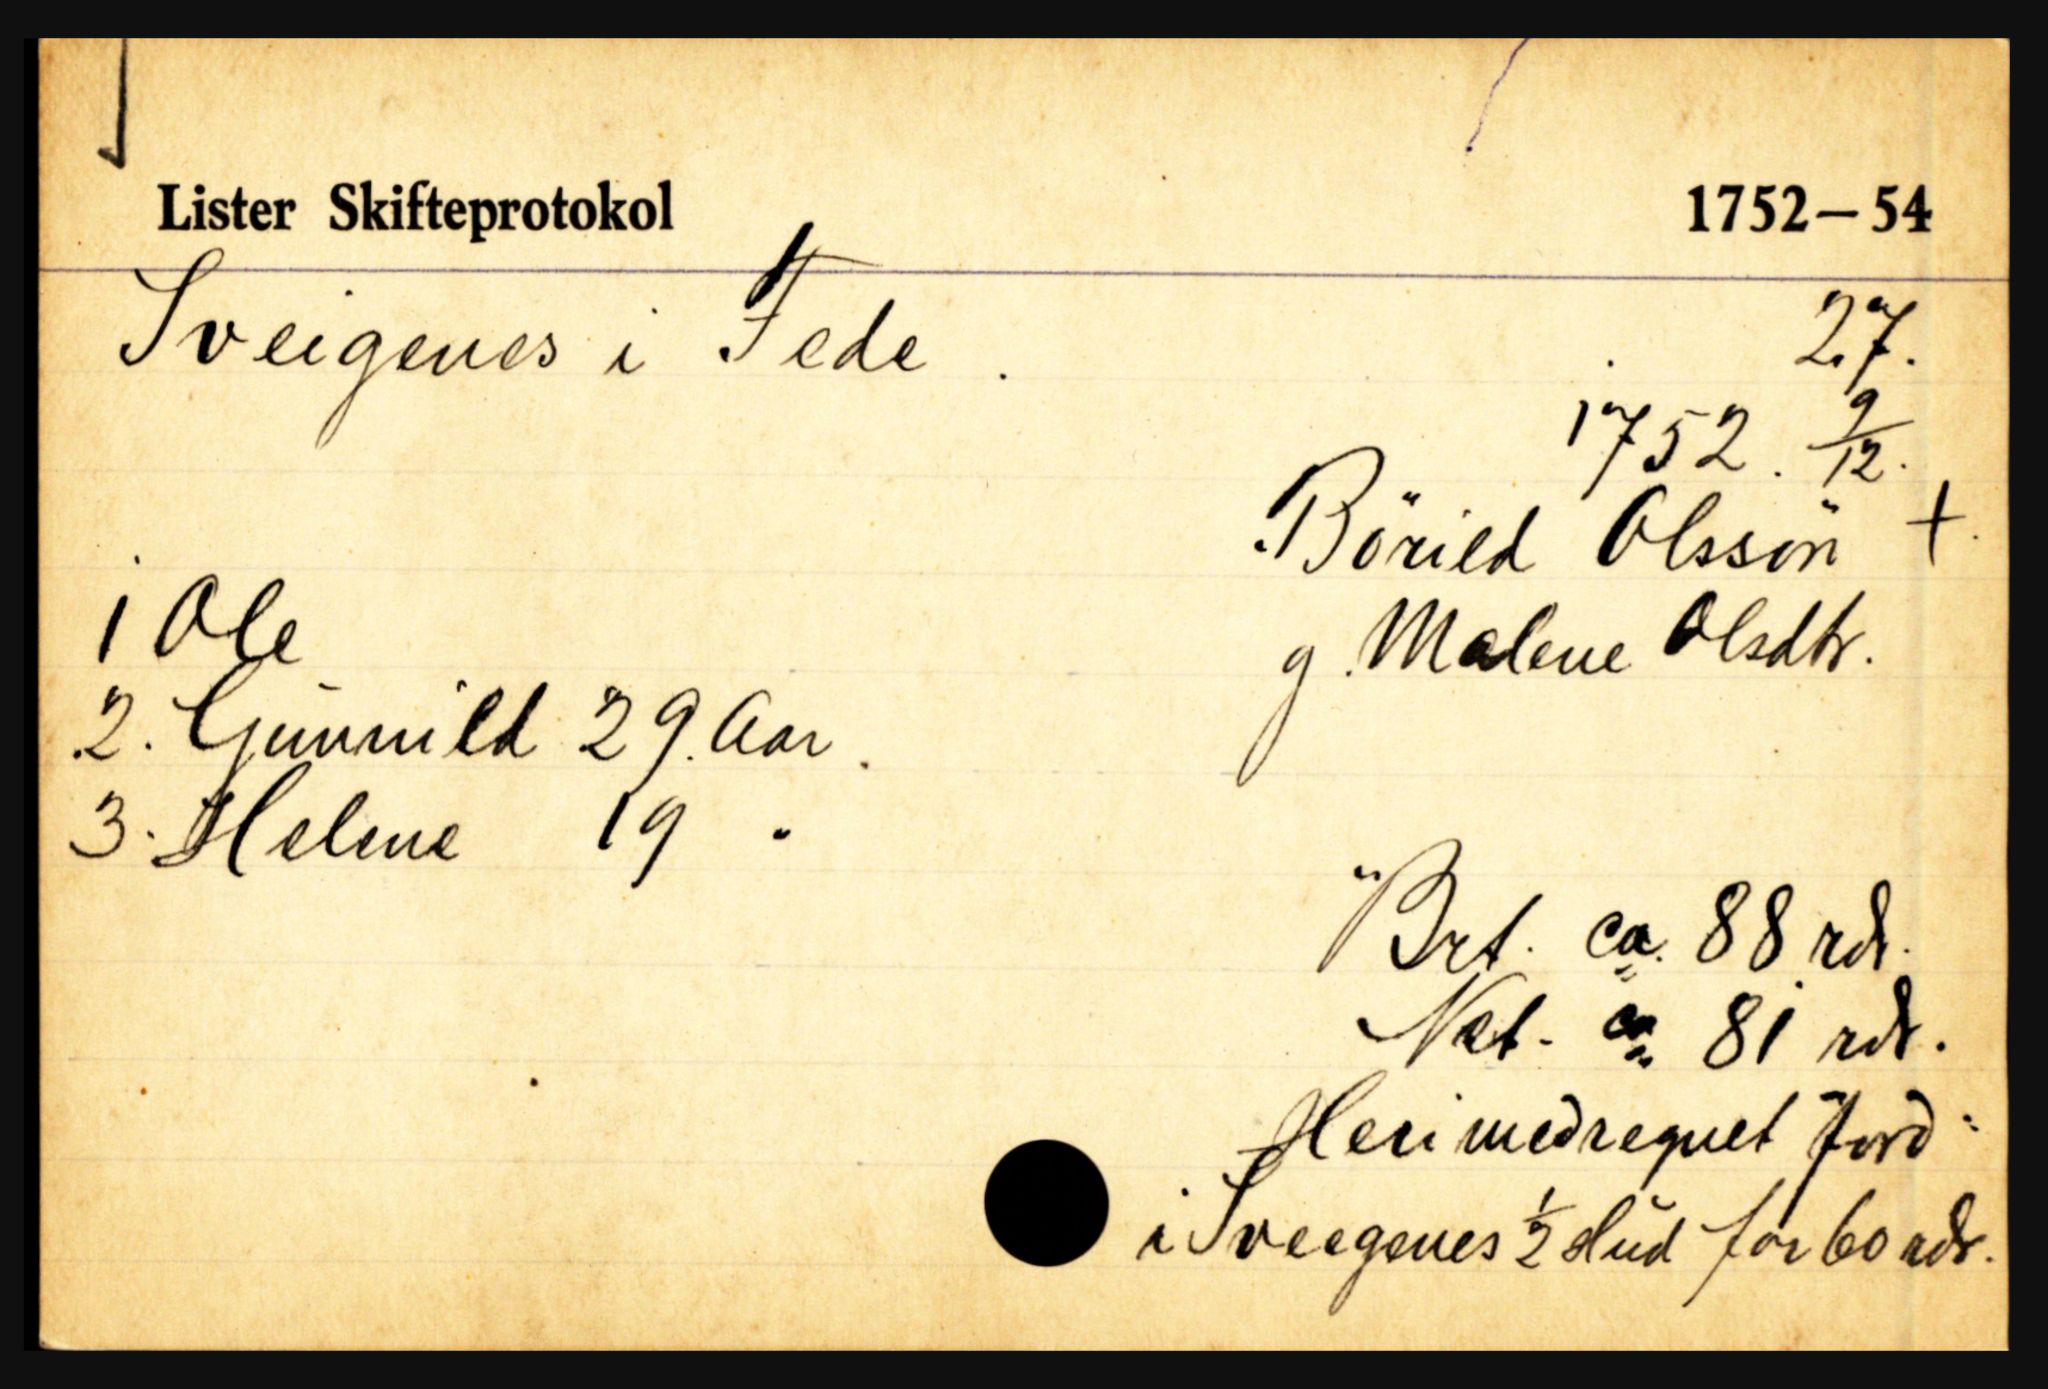 Lister Skifteprotokol 1752–54
Sveigenes i Fede . 27.
1752. 9/12.
Börild Olssön +
g. Malene Olsdtr.
1 Ole
2. Gunnild 29 Aar.
3. Helene 19 "
Brt. ca. 88 rdr.
Net. ca 81 rdr.
Heri medregnet Jord
i Sveigenes 1/2 Hud for 60 rdr.